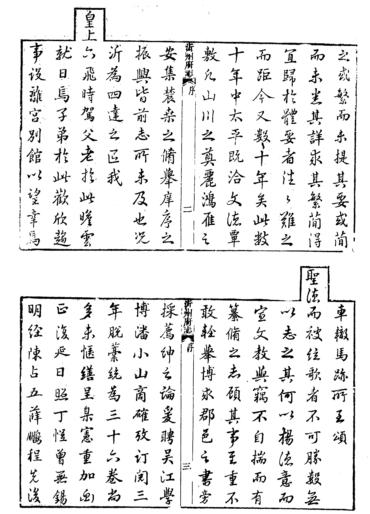 之或繁而未提其要或簡
而未悉其詳求其繁簡得
宜歸於體要者往々難之
而距今又數十年矣此數
十年中太平既洽文德覃
敷凡山川之奠麗鴻雁之
沂州府志 序 二
安集農桑之脩舉庠序之
振興皆前志所未及也况
沂為四達之區我
皇上六飛時駕父老於此瞻雲
就日焉子弟於此歡欣趨
事设離宮別館以望幸焉
車轍馬跡所至頌
聖德而被弦歌者不可勝數無
以志之其何以揚德意而
宣文教與竊不自揣而有
纂脩之志顧其事至重不
敢輕舉博求郡邑之書旁
沂州府志 序 三
採薦紳之論爰聘吳江學
博潘小山商確攷訂閱三
年脫藁統為三十六卷尚
多未愜繕呈臬憲重加画
正復延日照丁愷曾無錫
明經陳占五薛鵬程先後